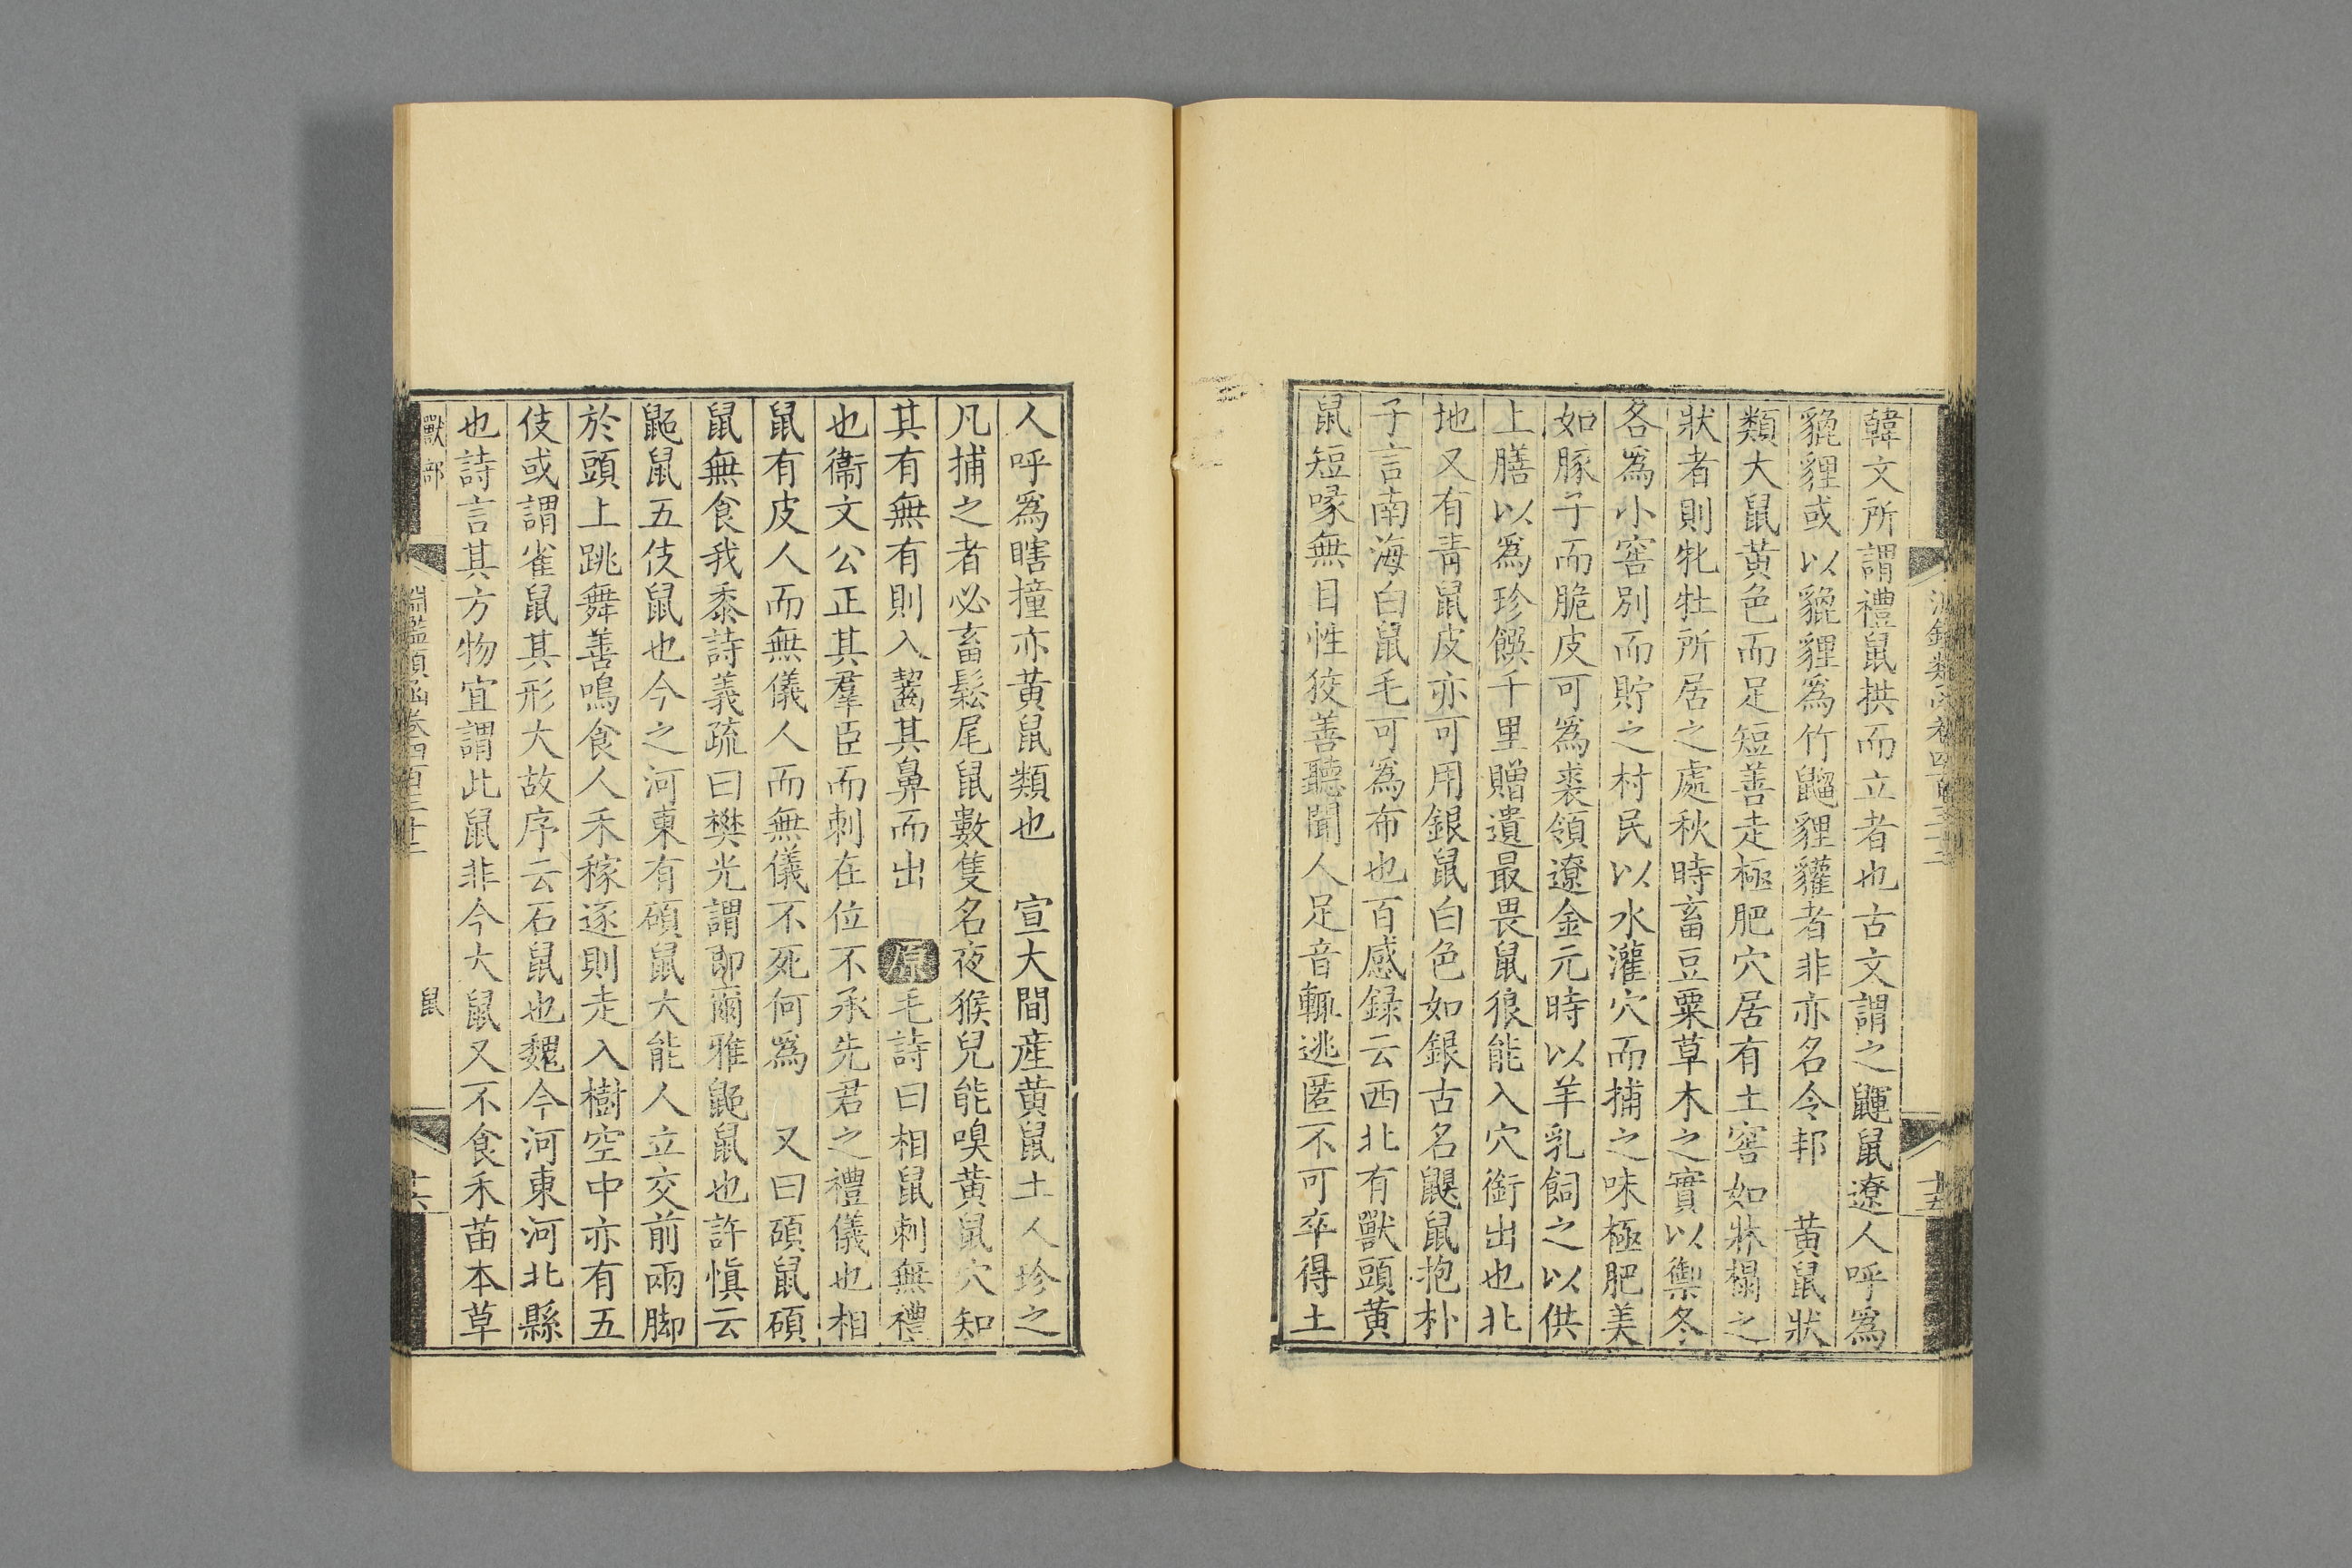 韓文所謂禮鼠拱而立者也古文謂之鼲鼠遼人呼爲
貔貍或以貔貍爲竹鼺貍貛者非亦名令邦　黃鼠狀
類大鼠黃色而足短善走極肥穴居有土窖如牀榻之
狀者則牝牡所居之處秋時畜豆粟草木之實以禦冬
各爲小窖別而貯之村民以水灌穴而捕之味極肥美
如豚子而脆皮可爲裘領遼金元時以羊乳飼之以供
上膳以爲珍饌千里贈遺最畏鼠狼能入穴銜出也北
地又有靑鼠皮亦可用銀鼠白色如銀古名鼰鼠抱朴
子言南海白鼠毛可爲布也百感録云西北有獸頭黃
鼠短喙無目性狡善聽聞人足音輒逃匿不可卒得土
十五
人呼爲瞎撞亦黃鼠類也　宣大間産黃鼠土人珍之
凡捕之者必畜鬆尾鼠數隻名夜猴兒能嗅黃鼠穴知
其有無有則入齧其鼻而出　原毛詩曰相鼠刺無禮
也衞文公正其羣臣而刺在位不承先君之禮儀也相
鼠有皮人而無儀人而無儀不死何爲　又曰碩鼠碩
鼠無食我黍詩義疏曰樊光謂卽爾雅鼫鼠也許愼云
鼫鼠五伎鼠也今之河東有碩鼠大能人立交前兩脚
於頭上跳舞善鳴食人禾稼逐則走入樹空中亦有五
伎或謂雀鼠其形大故序云石鼠也魏今河東河北縣
也詩言其方物宜謂此鼠非今大鼠又不食禾苗本草
獸部
淵鑑類函卷四百三十二
鼠
十六